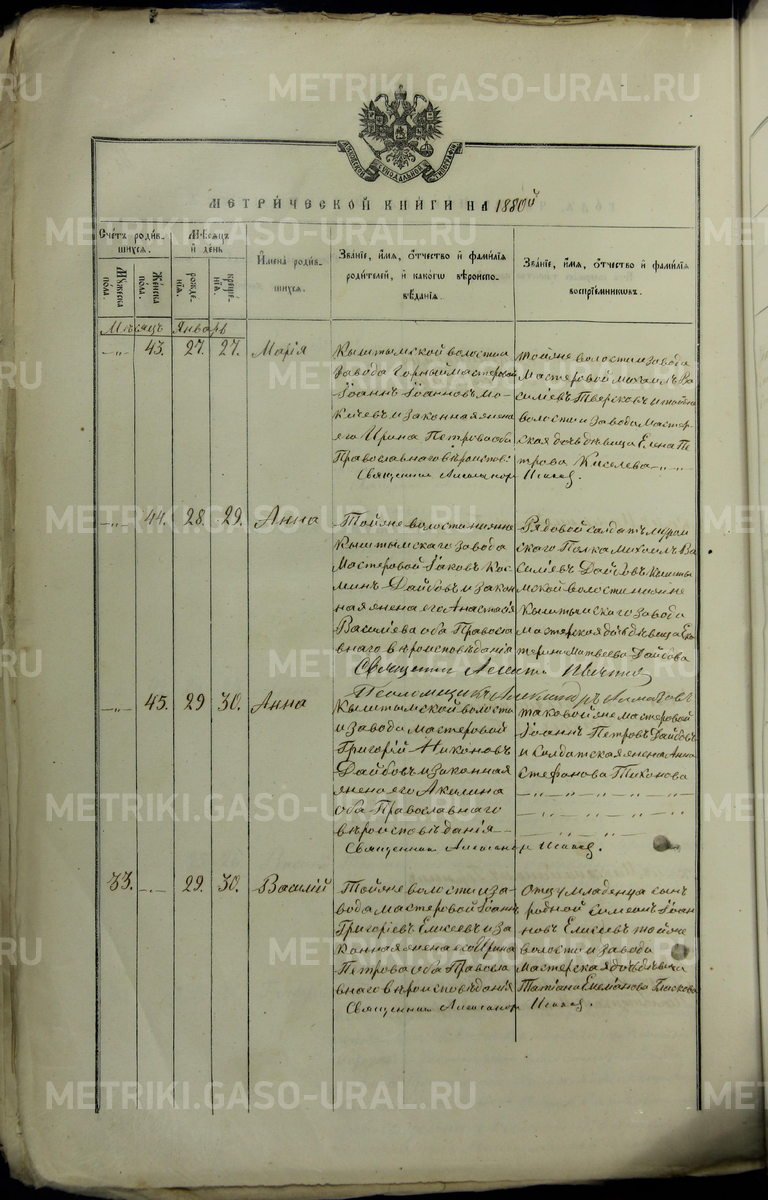 МЕТРИ́ЧЕСКОЙ КНИ́ГИ НА 1880й
Сче́тъ роди́в-
шихся.
Му́жеска
пола.
Же́нска
по́ла.
Мѣсяцъ
и҆ день
рожде-
нїѧ.
креще-
нїѧ.
И҆мена̀ роди́в-
шихся.
Зва́нїе, и҆́мя, ѻ҆́тчество и҆ фами́лїя
роди́телей, и҆ како́гѡ вѣроиспо-
вѣ́данїя.
Зва́нїе, и҆́мя, ѻ҆́тчество и҆ фами́лїя
воспрїе́мникѡвъ.
Мѣсяцъ Январь
-„- 43. 27. 27. Марія
Кыштымской волости и
завода Горный мастеровой
Іоаннъ Іоанновъ
и законная жена
его Ирина Петрова оба
Православнаго вѣроиспов:
Той же волости и завода
Мастеровой Михаилъ Ва
силіевъ Тверсковъ и той же
волости и завода Мастер
ская дочь дѣвица Елена Пе
трова Киселева -„-„
Священник Александр Исаков.
-„- 44. 28. 29. Анна
Той же волости
Кыштымскаго завода
Мастеровой Іаковъ Кос
минъ Дайбовъ и закон
ная жена его Анастасія
Василіева оба Правосла
внаго вѣроисповѣданія
Рядовой солдатъ
скаго Полка Михаилъ Ва
силіевъ Дайбовъ Кышты
мской волости
Кыштымскаго завода
мастерская дочь дѣвица Ека
терина Матвеева Дайбова
Священник
Псаломщикъ Александръ
-„- 45. 29 30. Анна
Кыштымской волости
и завода мастеровой
Григорій Никоновъ
Дайбовъ и законная
жена его Акилина
оба Православнаго
вѣроисповѣданія
таковой же мастеровой
Іоаннъ Петровъ Дайбовъ
и Солдатская жена Анна
Стефанова Тихонова
Священник Александр Исаков.
33. -„- 29. 30. Василій
Той же волости и за
вода мастеровой Іоаннъ
Григоріевъ Елисеевъ и за
конная жена его Ирина
Петрова оба Правосла
внаго вѣроисповѣданія
Отцу младенца сынъ
родной Симеонъ Іоан
новъ Елисеевъ той же
волости и завода
мастерская дочь дѣвица
Татіана Емеліанова
Священник Александр Исаков.
METRIKI.GASO-URAL.RU